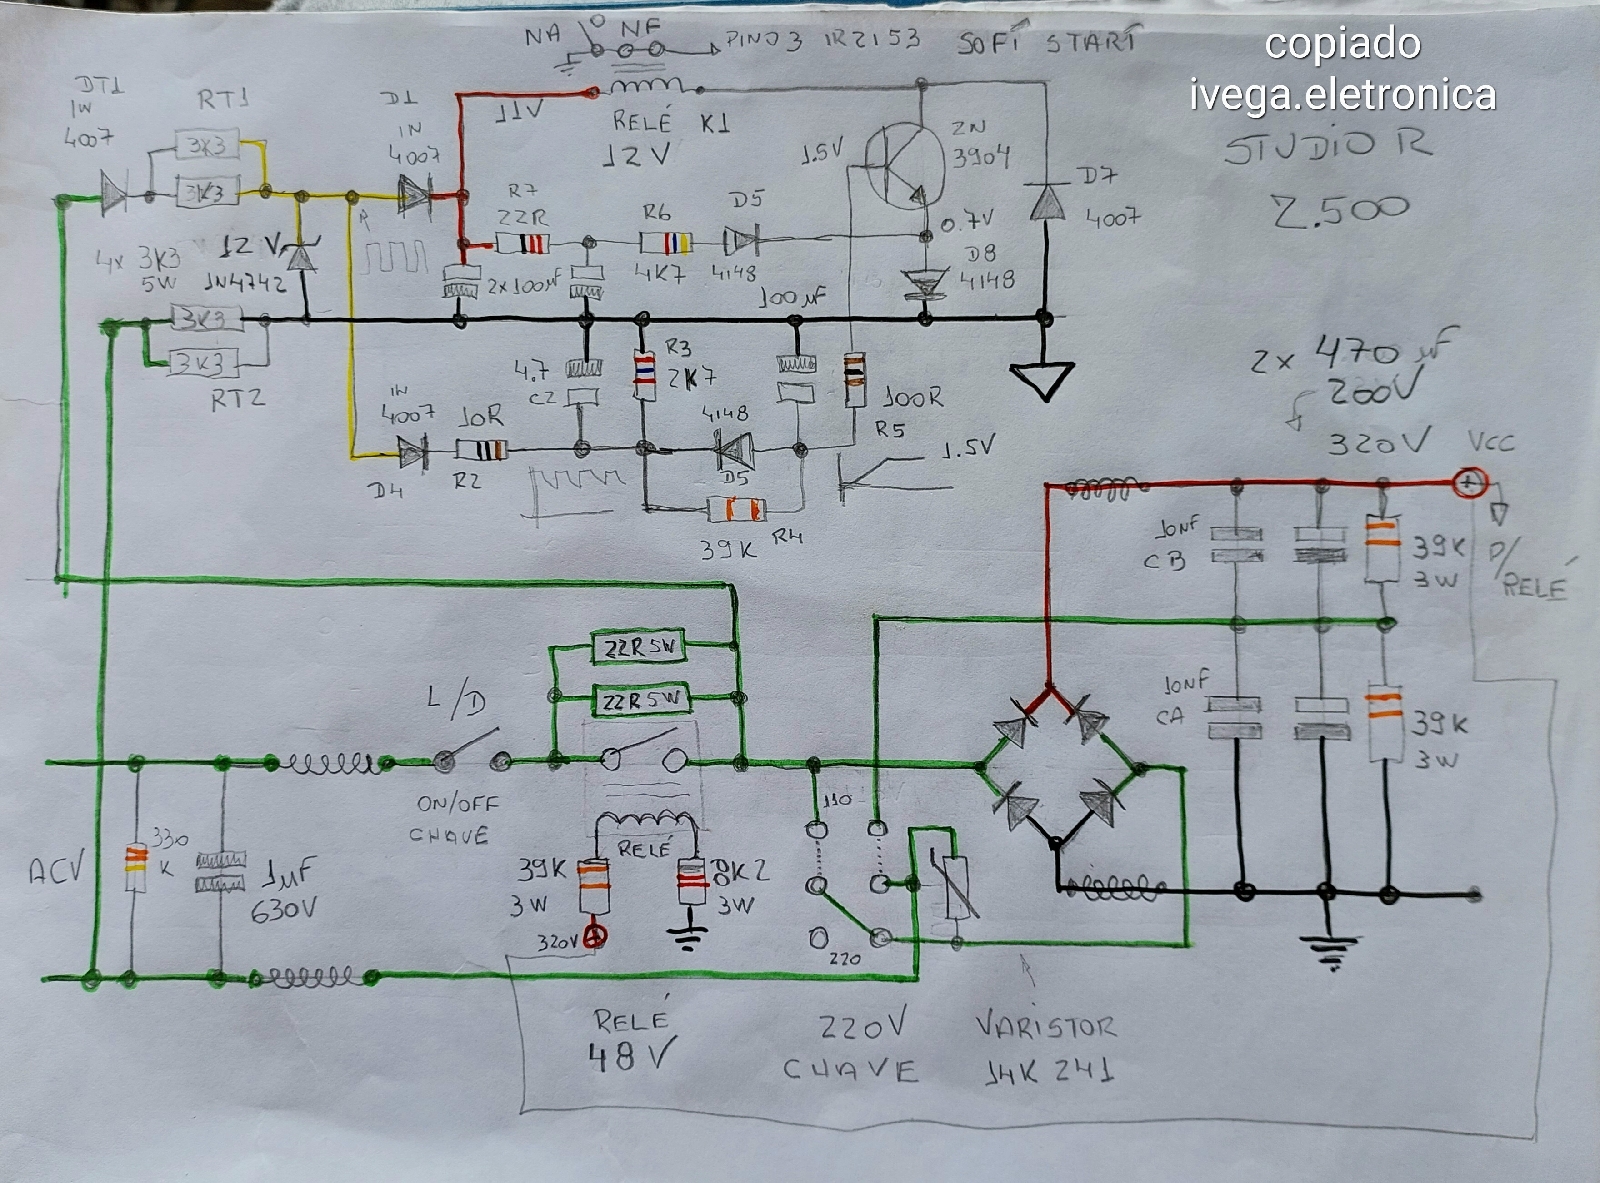 NA
NF
PINO 3 IR2153 SOFT START
copiado
ivega.eletronica
STUDIO R
Z.500
DT1
1W
4007
RT1
3K3
3K3
D1
1N
4007
11V
RELÉ K1
12V
1.5V
2N
3904
D7
4007
R7
22R
R6
4K7
D5
4148
0.7V
D8
4148
12V
1N4742
4x 3K3
5W
3K3
3K3
RT2
2x100µF
100µF
4.7
C2
R3
2K7
1N
4007
D4
10R
R2
4148
D5
39K
R4
100R
R5
1.5V
2x 470µF
200V
320V
VCC
P/
RELÉ
10NF
CB
39K
3W
10NF
CA
39K
3W
22R 5W
22R 5W
L/D
ON/OFF
CHAVE
RELÉ
39K
3W
3W
320V
110
220
ACV
330
K
1µF
630V
RELÉ
48V
220V
CHAVE
VARISTOR
14K 241